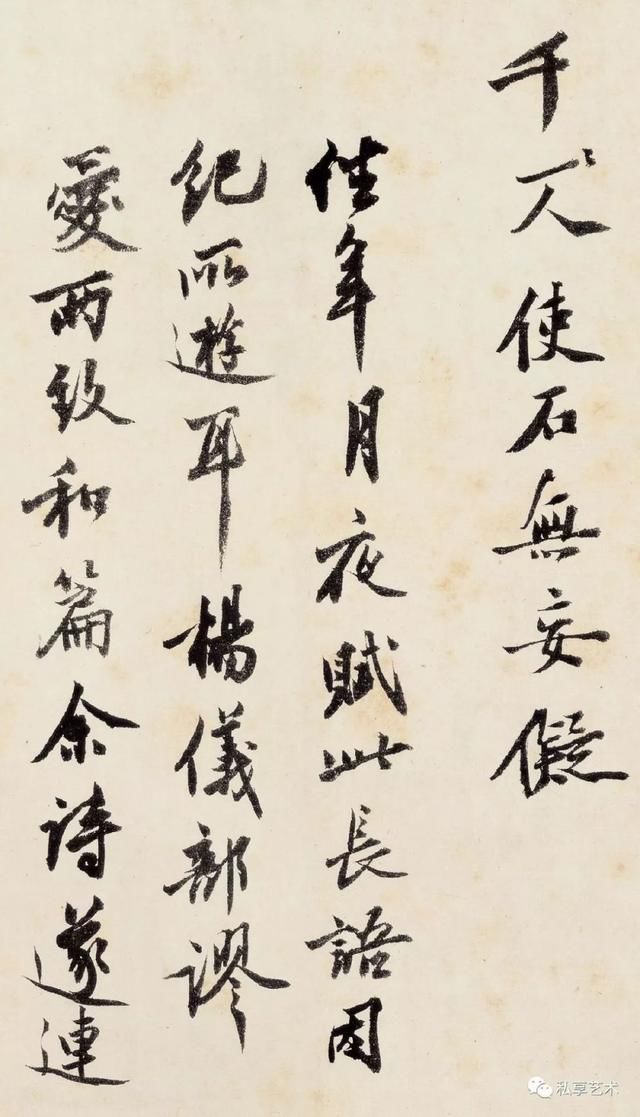 千人使石無妄儗
往年月夜賦此長語因
紀所遊耳楊儀部謬
愛兩致和篇余詩遂連
私享艺术